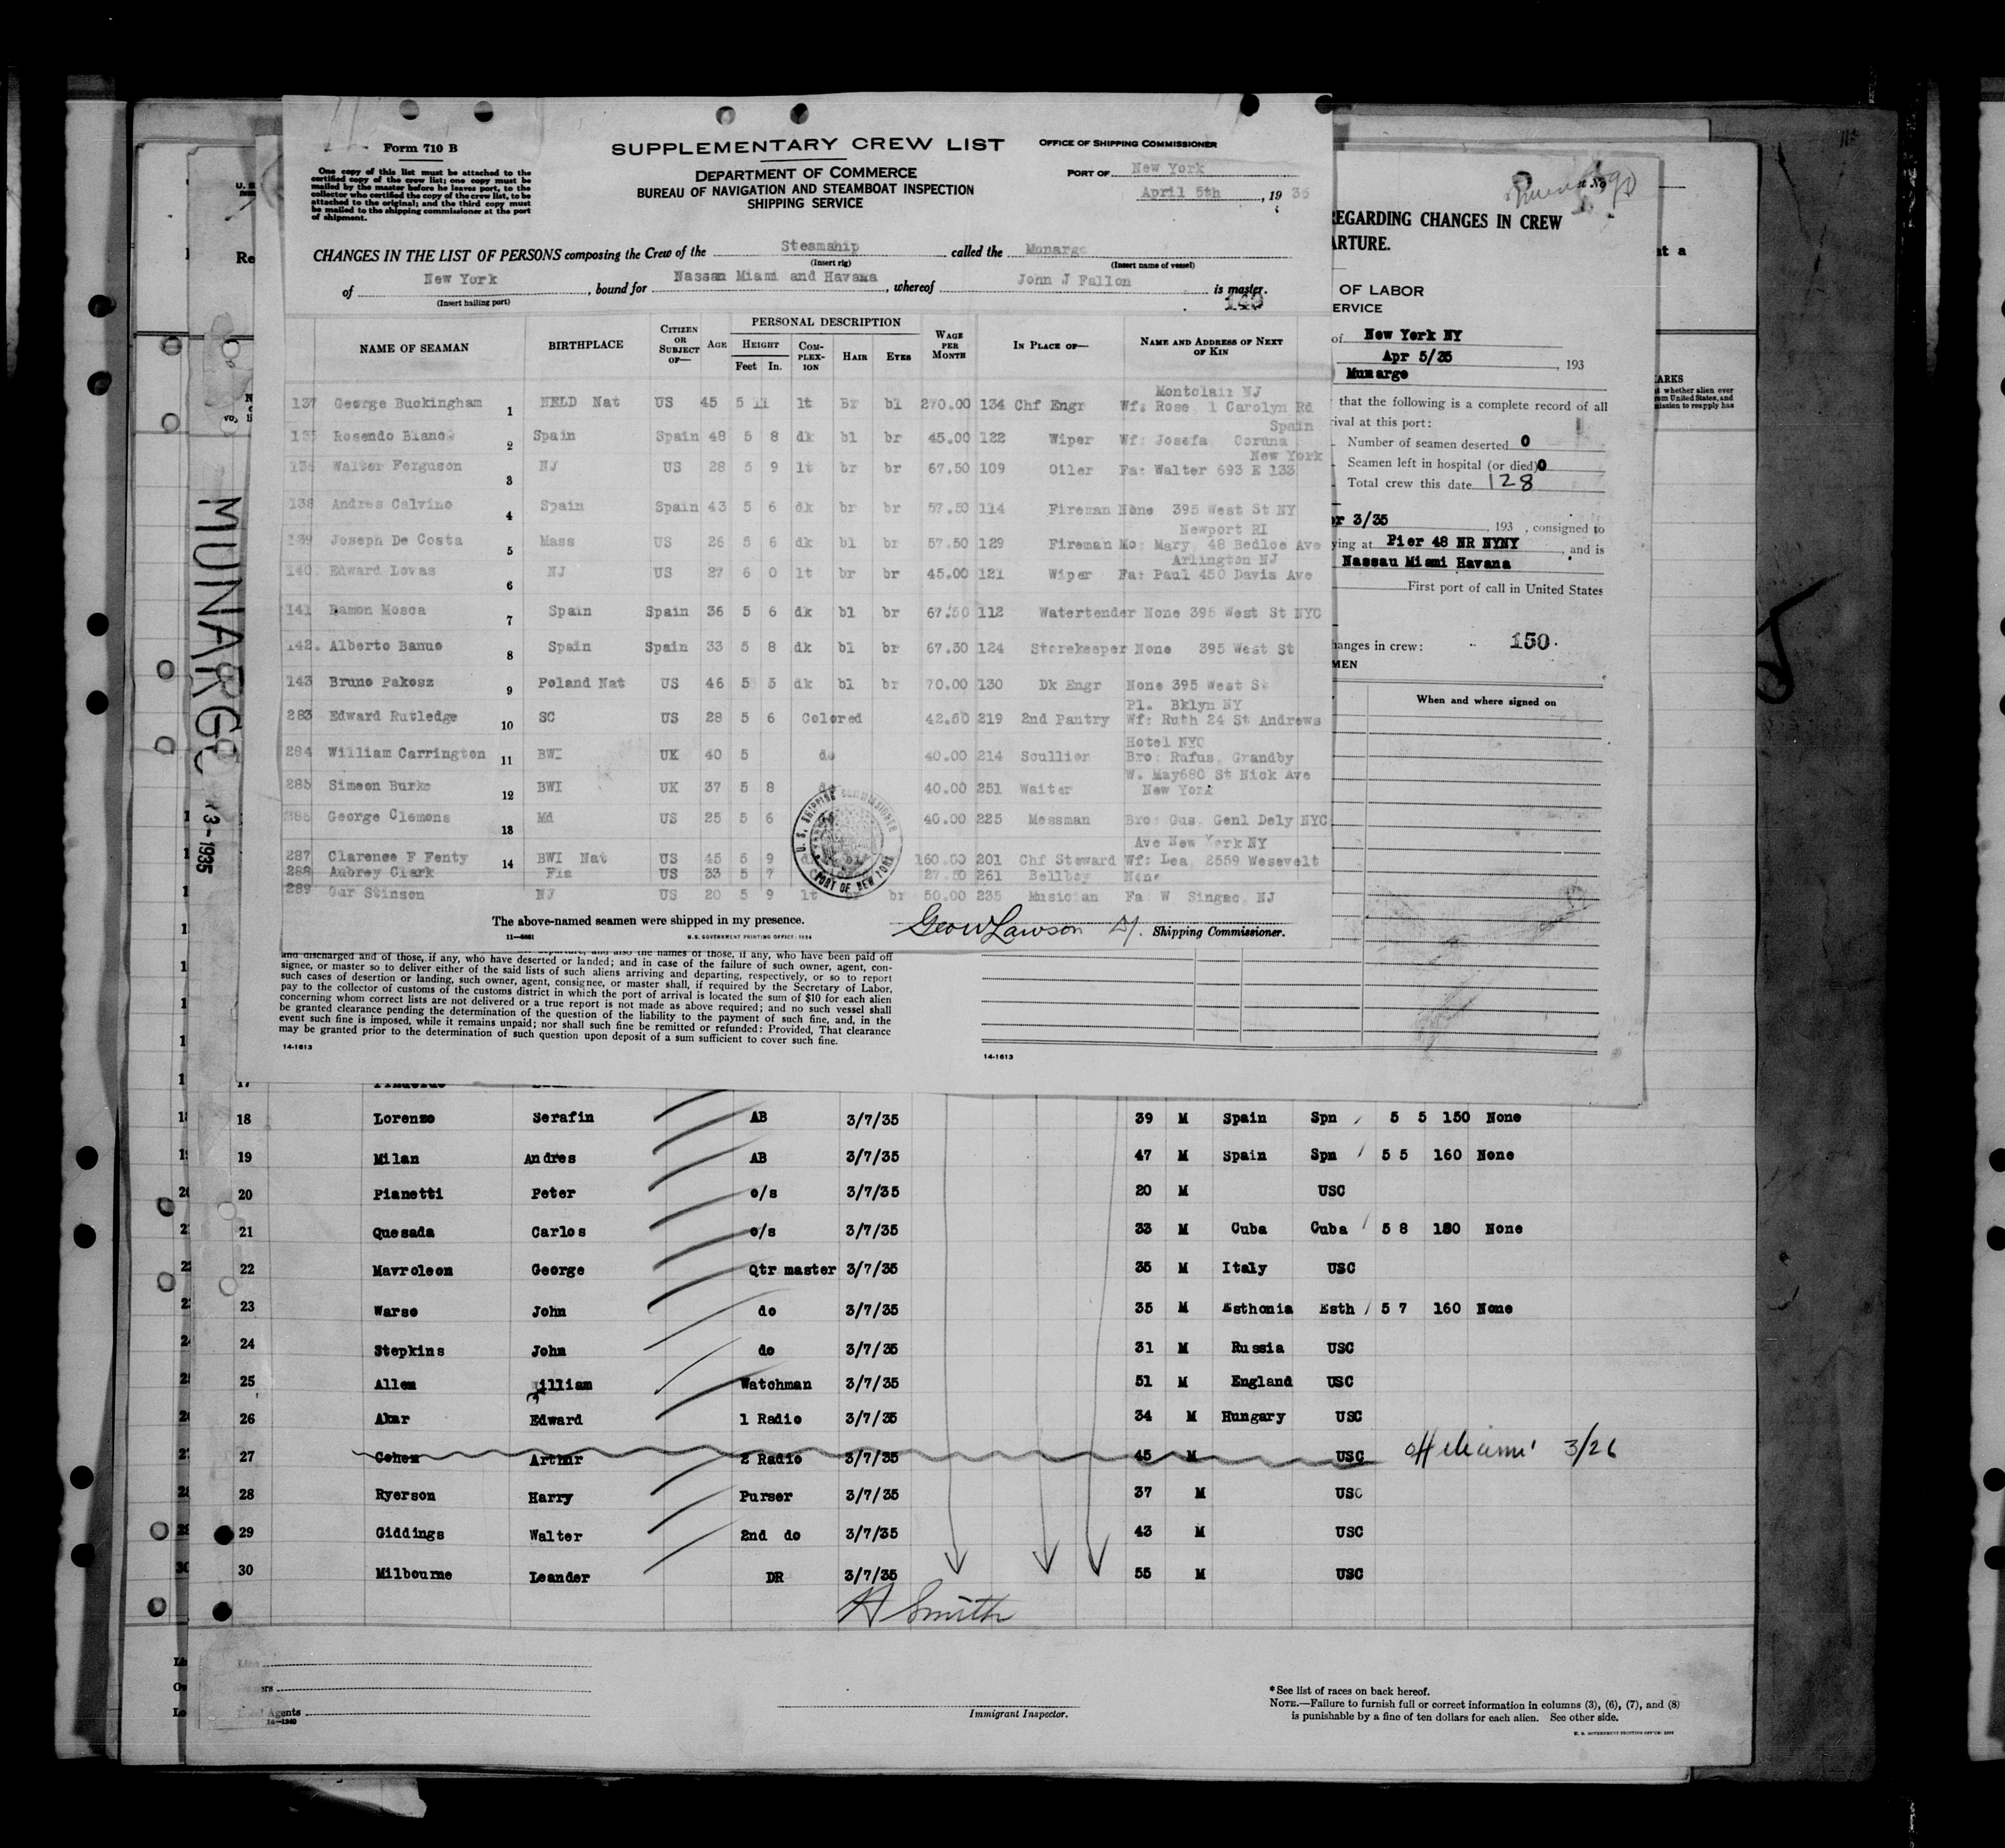 Form 710 B
One copy of this list must be attached to the
certified copy of the crew list; one copy must be
mailed by the master before he leaves port, to the
collector who certified the copy of the crew list, to be
attached to the original; and the third copy must
be mailed to the shipping commissioner at the port
of shipment.
SUPPLEMENTARY CREW LIST
DEPARTMENT OF COMMERCE
BUREAU OF NAVIGATION AND STEAMBOAT INSPECTION
SHIPPING SERVICE
OFFICE OF SHIPPING COMMISSIONER
PORT OF New York
April 5th, 1935
CHANGES IN THE LIST OF PERSONS composing the Crew of the Steamship called the Munargo
(Insert rig) (Insert name of vessel)
of New York, bound for Nassau Miami and Havana, whereof John J Fallon is master.
(Insert hailing port)
149
NAME OF SEAMAN BIRTHPLACE CITIZEN OR SUBJECT OF— AGE PERSONAL DESCRIPTION HEIGHT Feet In. COM-PLEX-ION HAIR EYES WAGE PER MONTH IN PLACE OF— NAME AND ADDRESS OF NEXT OF KIN
Montclair NJ
137 George Buckingham 1 NFLD Nat US 45 5 11 lt Br bl 270.00 134 Chf Engr Wf: Rose 1 Carolyn Rd
Spain
135 Rosendo Blanco 2 Spain Spain 48 5 8 dk bl br 45.00 122 Wiper Wf: Josefa Coruna
New York
136 Walter Ferguson 3 NJ US 28 5 9 lt br br 67.50 109 Oiler Fa: Walter 693 E 133
138 Andres Calvino 4 Spain Spain 43 5 6 dk br br 57.50 114 Fireman None 395 West St NY
Newport RI
139 Joseph De Costa 5 Mass US 26 5 6 dk bl br 57.50 129 Fireman Mo: Mary 48 Bedloe Ave
Arlington NJ
140. Edward Lovas 6 NJ US 27 6 0 lt br br 45.00 121 Wiper Fa: Paul 450 Davis Ave
141 Ramon Mosca 7 Spain Spain 36 5 6 dk bl br 67.50 112 Watertender None 395 West St NYC
142. Alberto Banuo 8 Spain Spain 33 5 8 dk bl br 67.50 124 Storekeeper None 395 West St
143 Bruno Pakosz 9 Poland Nat US 46 5 5 dk bl br 70.00 130 Dk Engr None 395 West St
Pl. Bklyn NY
283 Edward Rutledge 10 SC US 28 5 6 Colored 42.50 219 2nd Pantry Wf: Ruth 24 St Andrews
Hotel NYC
284 William Carrington 11 BWI UK 40 5 do 40.00 214 Scullier Bro: Rufus, Grandby
W. May680 St Nick Ave
285 Simeon Burke 12 BWI UK 37 5 8 do 40.00 251 Waiter New York
286 George Clemons 13 Md US 25 5 6 40.00 225 Messman Bro: Gus, Genl Dely NYC
Ave New York NY
287 Clarence F Fenty 14 BWI Nat US 45 5 9 160.00 201 Chf Steward Wf: Lea, 2559 Wesevelt
288 Aubrey Clark Fla US 33 5 7 27.50 261 Bellboy None
289 Gar Stinson NJ US 20 5 9 lt br br 50.00 235 Musician Fa W Singac, NJ
U. S. SHIPPING COMMISSIONER
PORT OF NEW YORK
The above-named seamen were shipped in my presence.
Geo W Lawson Dy. Shipping Commissioner.
U. S. GOVERNMENT PRINTING OFFICE: 1934
REGARDING CHANGES IN CREW
ARTURE.
OF LABOR
ERVICE
of New York NY
Apr 5/35, 193
Munargo
that the following is a complete record of all
rival at this port:
Number of seamen deserted 0
Seamen left in hospital (or died) 0
Total crew this date 128
r 3/35, 193 , consigned to
ying at Pier 48 NR NYNY, and is
Nassau Miami Havana
First port of call in United States
hanges in crew: 150.
MEN
When and where signed on
MUNARGO
3-1935
and discharged and of those, if any, who have deserted or landed; and in case of the failure of such owner, agent, con-
signee, or master so to deliver either of the said lists of such aliens arriving and departing, respectively, or so to report
such cases of desertion or landing, such owner, agent, consignee, or master shall, if required by the Secretary of Labor,
pay to the collector of customs of the customs district in which the port of arrival is located the sum of $10 for each alien
concerning whom correct lists are not delivered or a true report is not made as above required; and no such vessel shall
be granted clearance pending the determination of the question of the liability to the payment of such fine, and, in the
event such fine is imposed, while it remains unpaid; nor shall such fine be remitted or refunded: Provided, That clearance
may be granted prior to the determination of such question upon deposit of a sum sufficient to cover such fine.
14-1613
14-1613
18 Lorenzo Serafin AB 3/7/35 39 M Spain Spn 5 5 150 None
19 Milan Andres AB 3/7/35 47 M Spain Spn 5 5 160 None
20 Pianetti Peter o/s 3/7/35 20 M USC
21 Quesada Carlos o/s 3/7/35 33 M Cuba Cuba 5 8 180 None
22 Mavroleon George Qtr master 3/7/35 35 M Italy USC
23 Warso John do 3/7/35 35 M Esthonia Esth 5 7 160 None
24 Stepkins John do 3/7/35 31 M Russia USC
25 Allen William Watchman 3/7/35 51 M England USC
26 Akar Edward 1 Radio 3/7/35 34 M Hungary USC
27 Cohen Arthur 2 Radio 3/7/35 45 M USC off Miami 3/26
28 Ryerson Harry Purser 3/7/35 37 M USC
29 Giddings Walter 2nd do 3/7/35 43 M USC
30 Milbourne Leander DR 3/7/35 55 M USC
H Smith
Line
Agents
14-1240
Immigrant Inspector.
*See list of races on back hereof.
NOTE.—Failure to furnish full or correct information in columns (3), (6), (7), and (8)
is punishable by a fine of ten dollars for each alien. See other side.